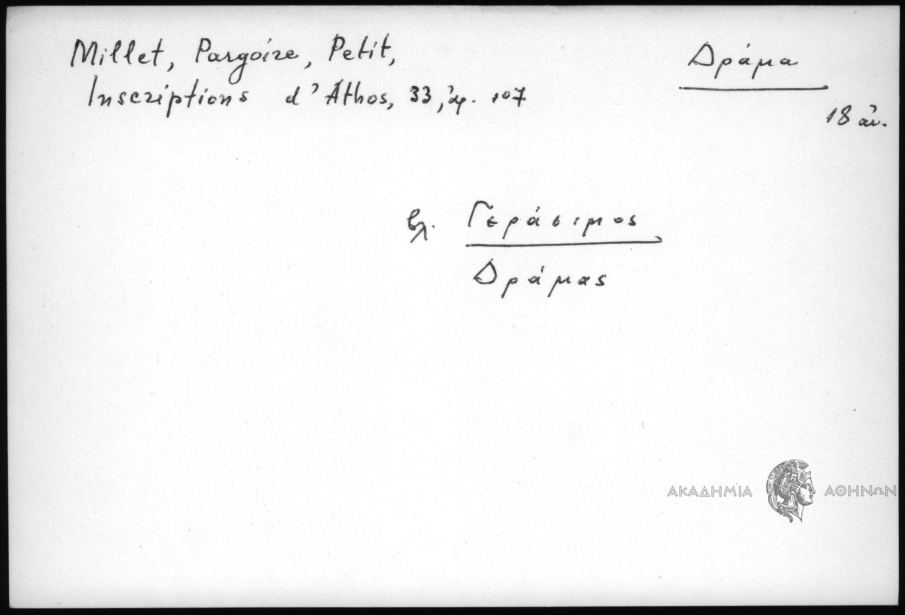 Millet, Pargoire, Petit,
Inscriptions d'Athos, 33, ἀρ. 107
Δράμα
18 αἰ.
βλ. Γεράσιμος
Δράμας
ΑΚΑΔΗΜΙΑ ΑΘΗΝΩΝ